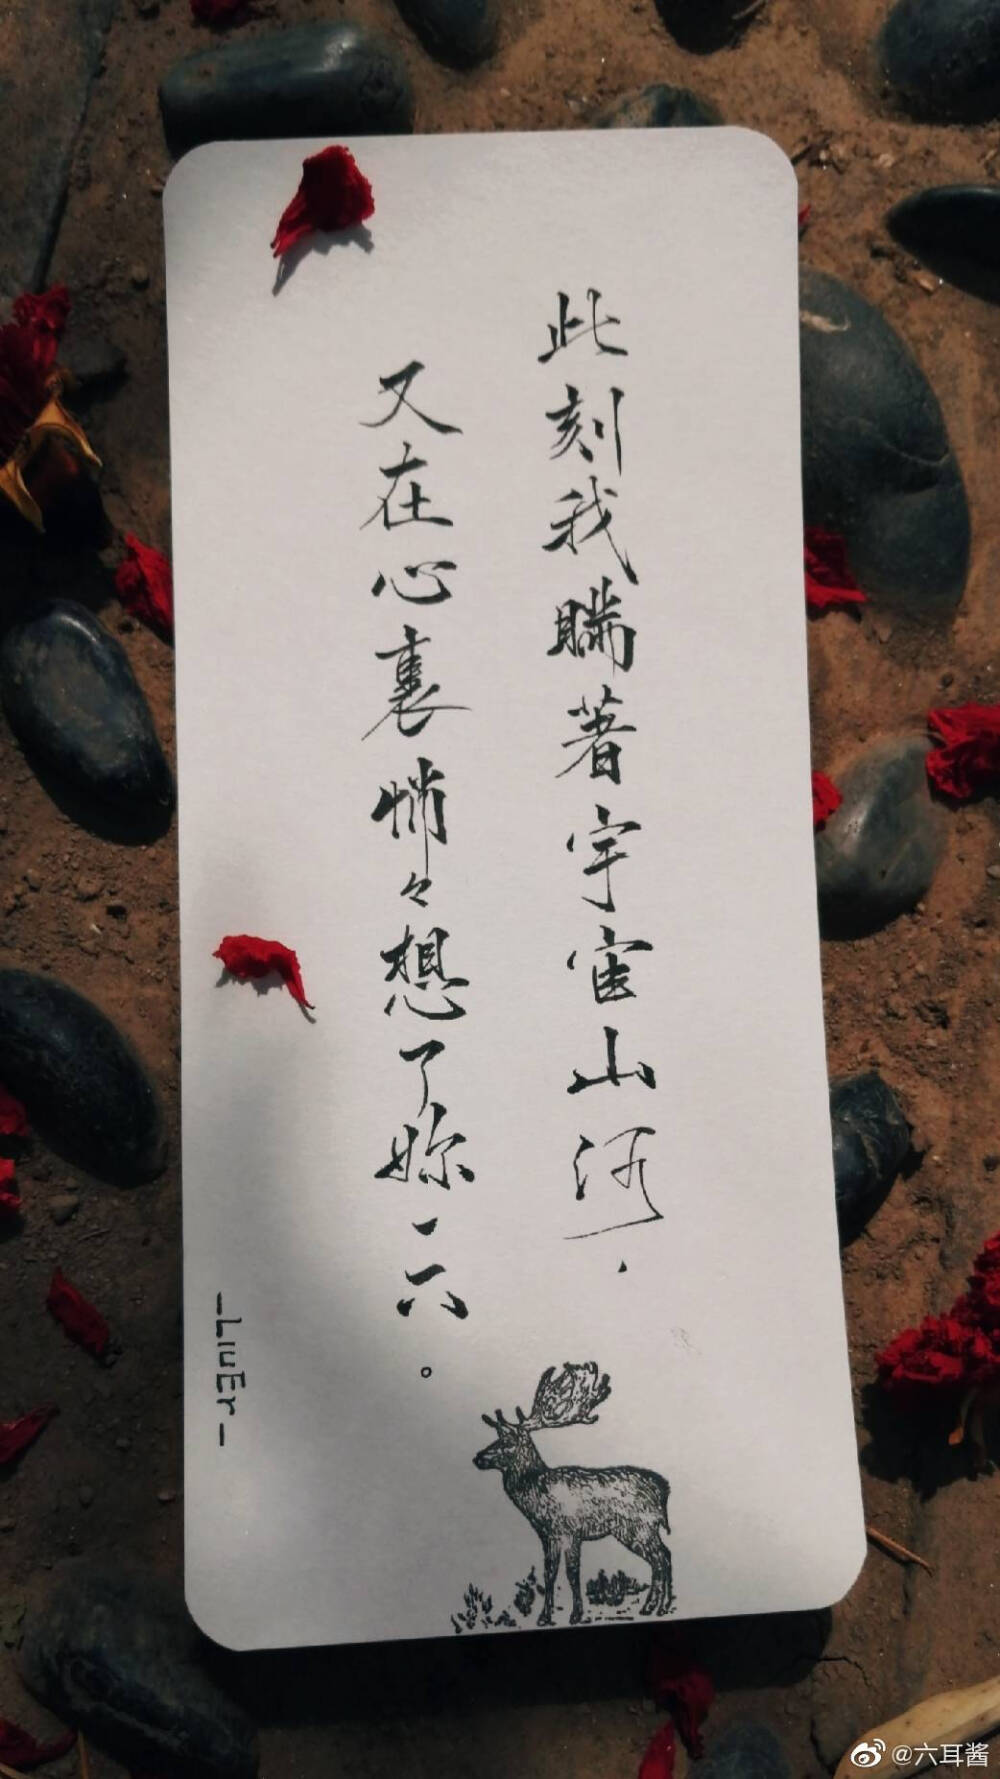 此刻我瞞著宇宙山河，
又在心裏悄々想了妳一下。
—LiuEr—
@六耳酱